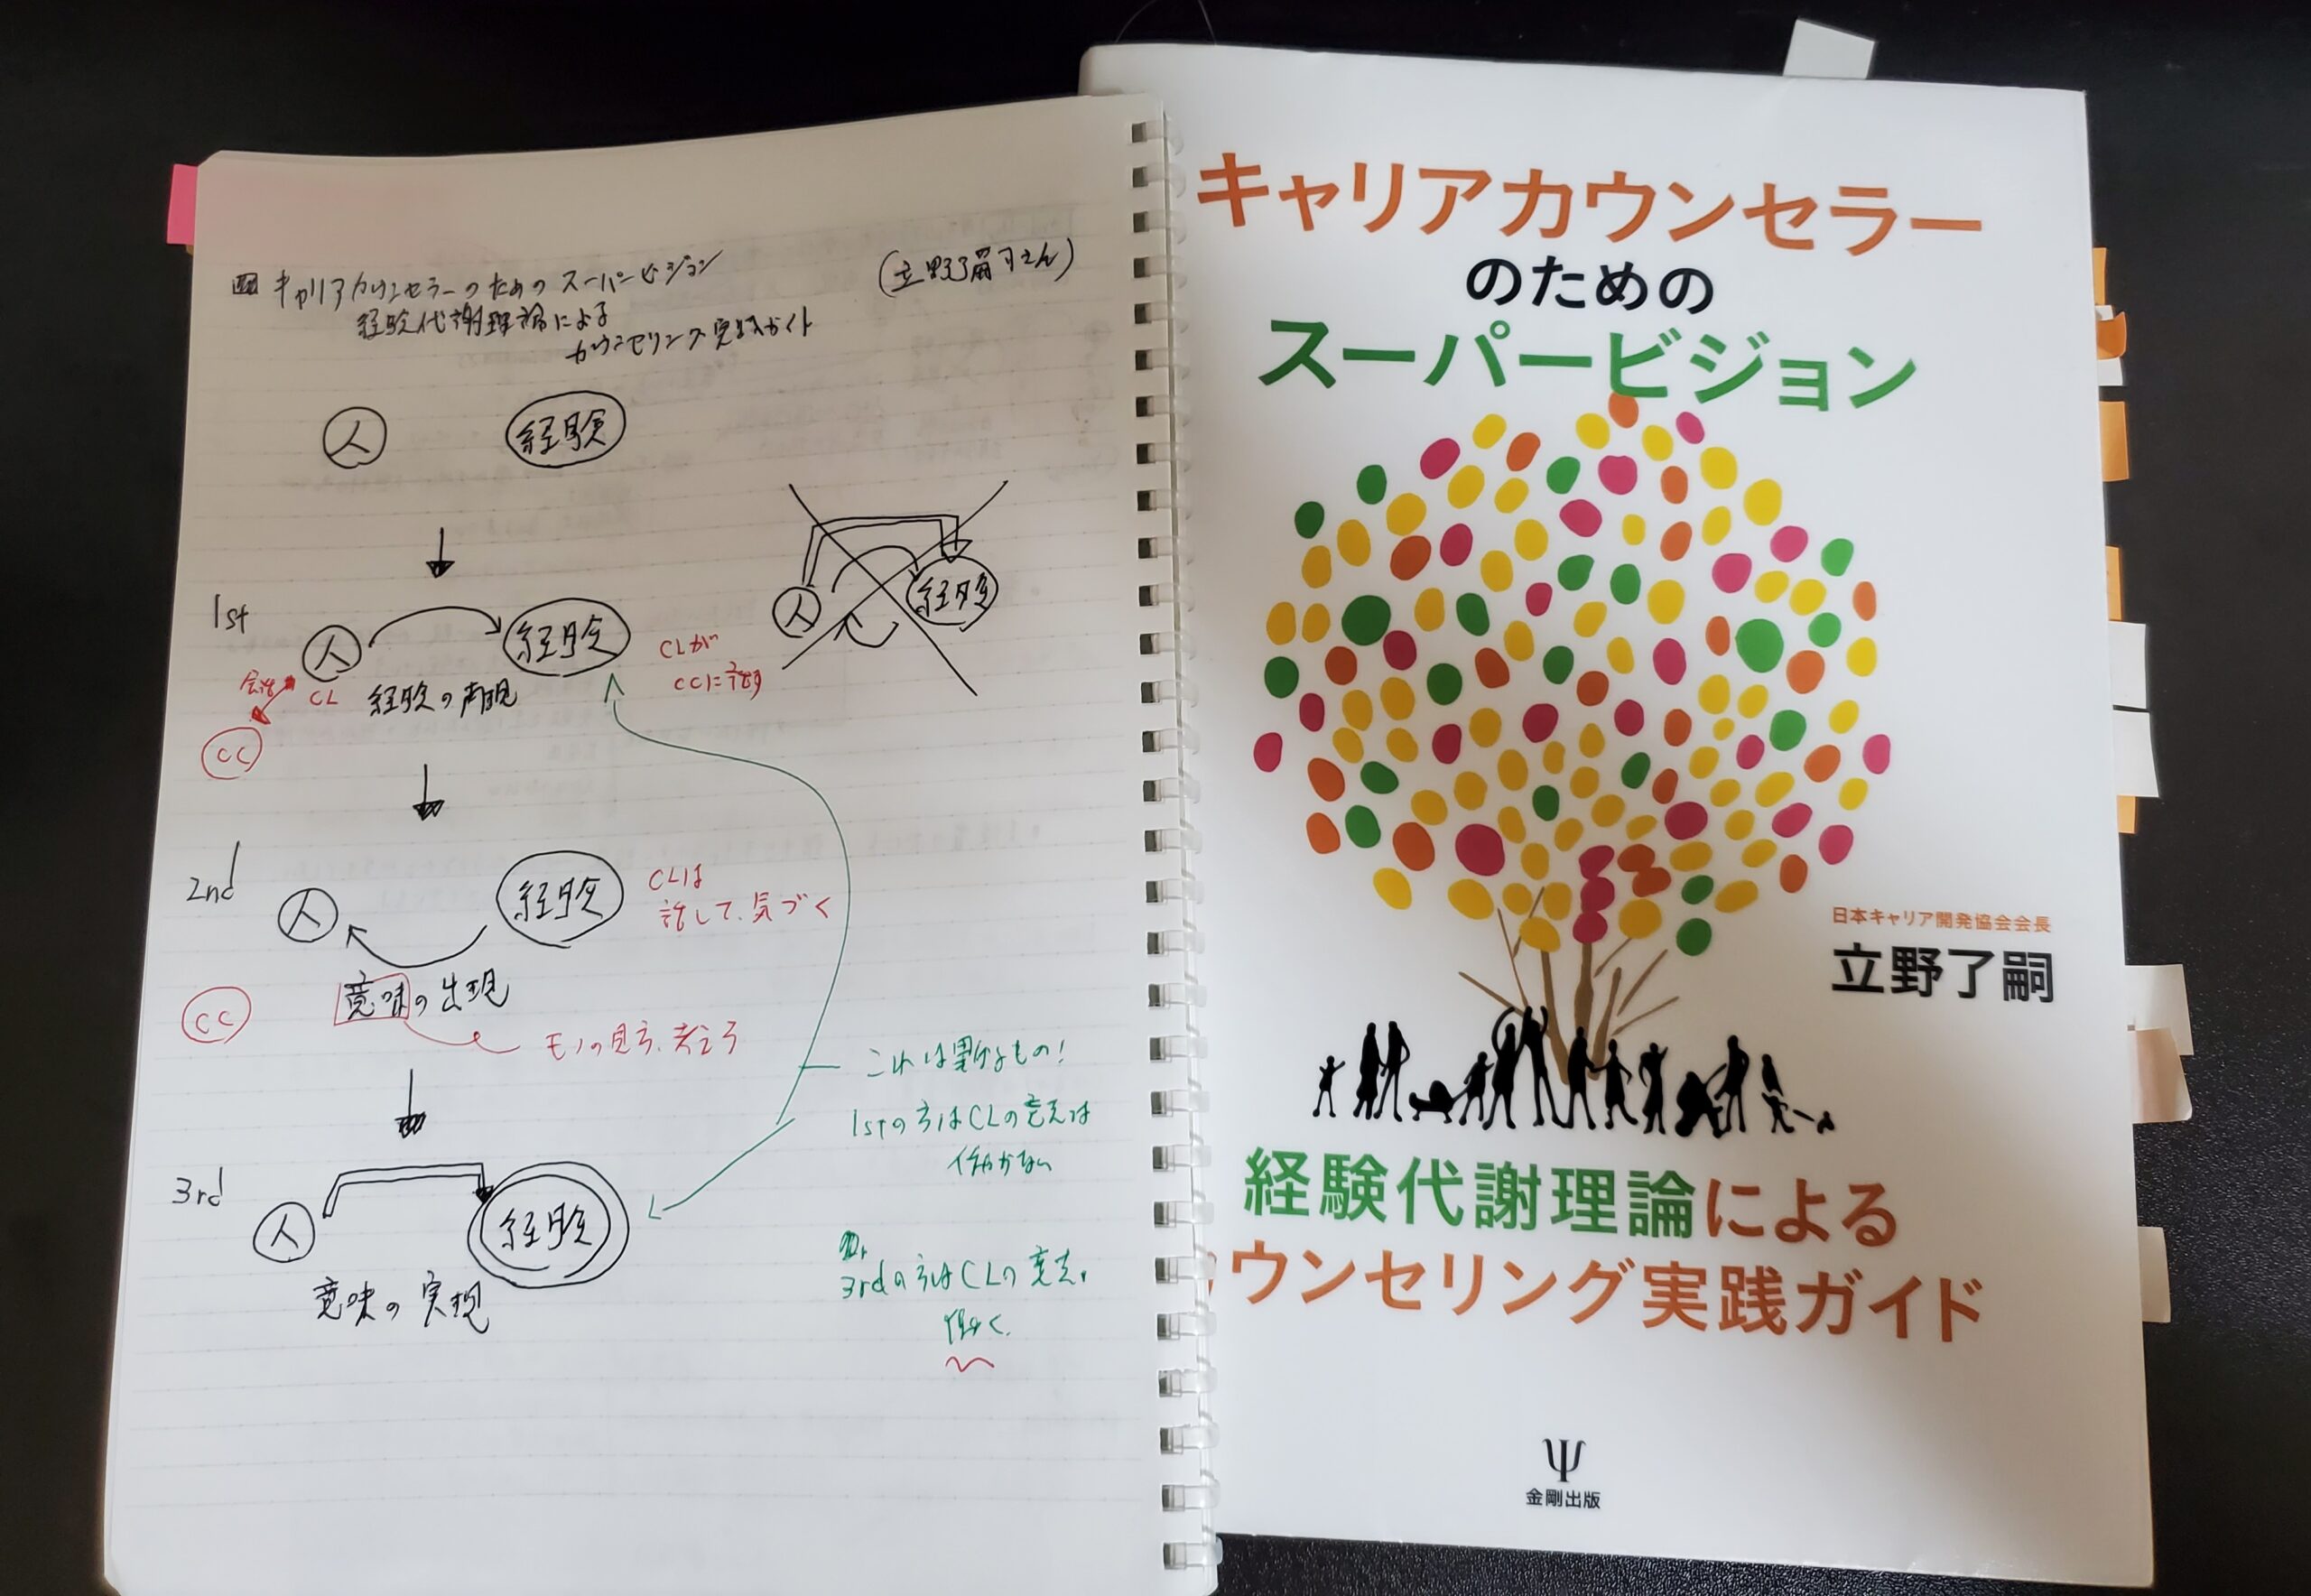 キャリアカウンセラーのためのスーパービジョン
(立野了嗣さん)
経験代謝理論による
カウンセリング実践ガイド
人
経験
1st
人
経験
人
経験
CLが
CCに話す
会話
CL
経験の再現
CC
2nd
人
経験
CLは
話して、気づく
CC
意味の出現
モノの見方、考え方
これは異なるもの!
1stの方はCLの意志は
働かない
3rd
人
経験
意味の実現
3rdの方はCLの意志
働く
キャリアカウンセラー
のための
スーパービジョン
日本キャリア開発協会会長
立野了嗣
経験代謝理論による
ウンセリング実践ガイド
金剛出版